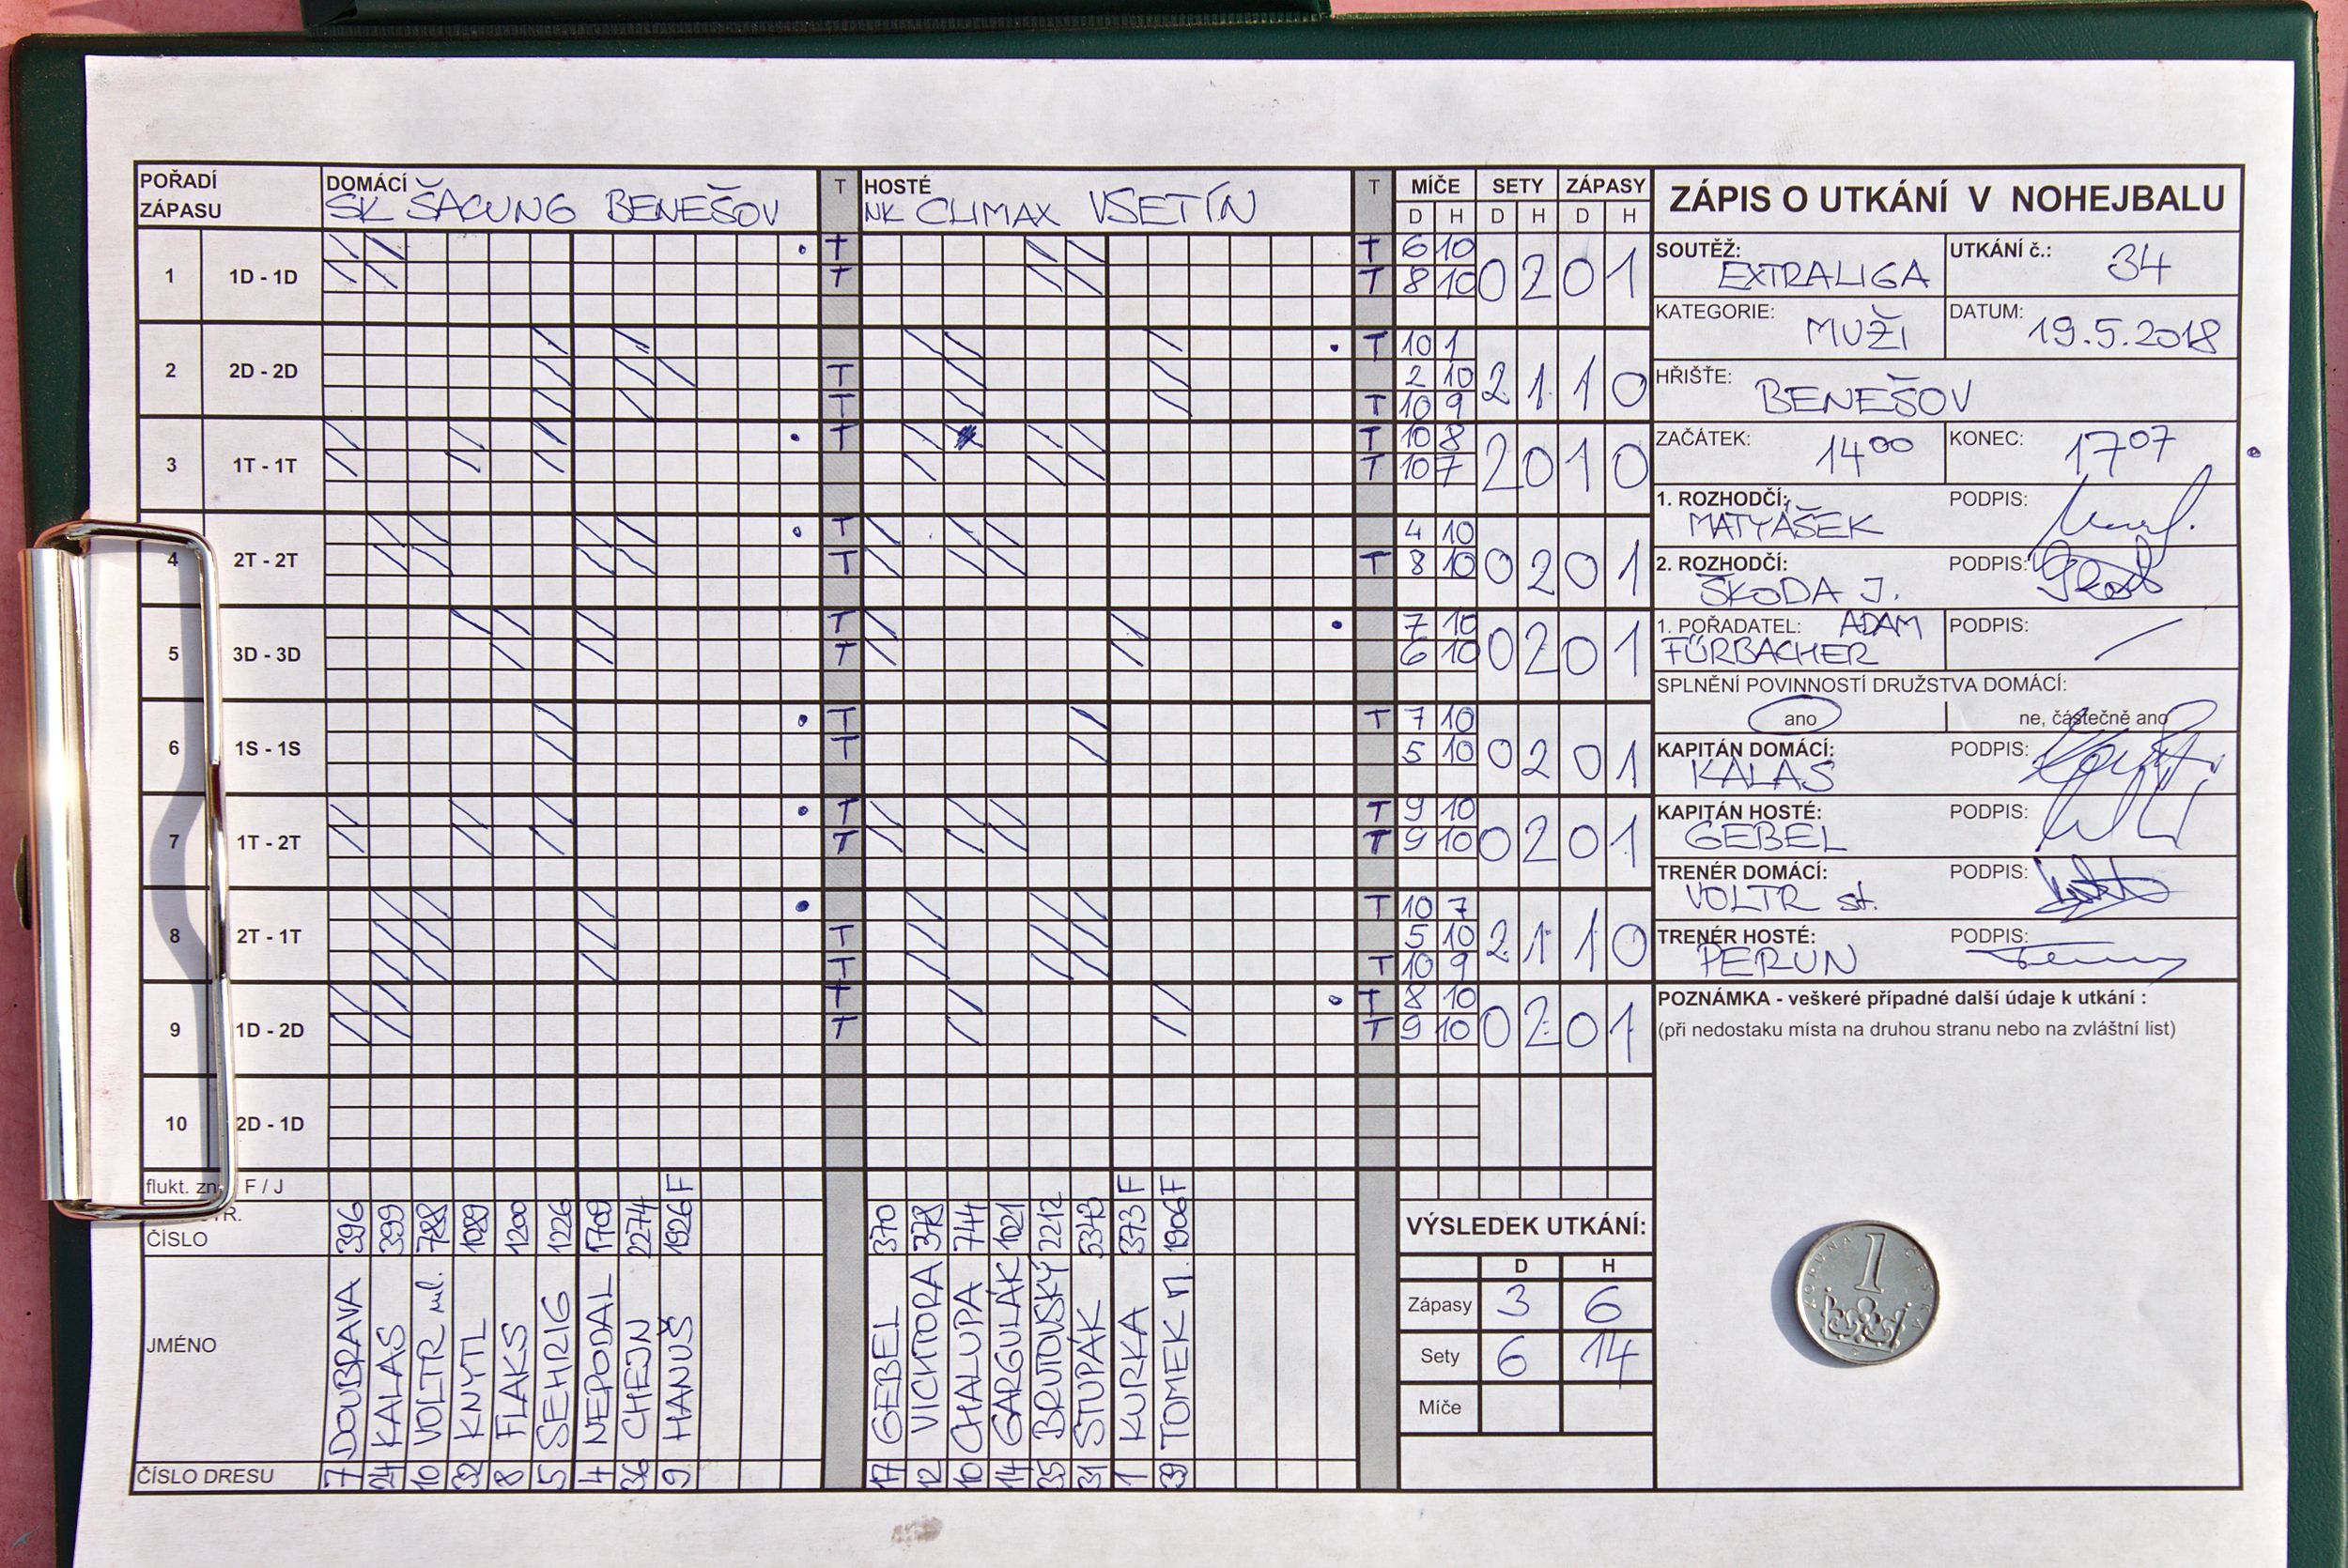 POŘADÍ ZÁPASU
DOMÁCÍ SK ŠACUNG BENEŠOV
T
HOSTÉ NK CLIMAX VSETÍN
T
MÍČE SETY ZÁPASY
D H D H D H
1 1D - 1D T T 6 10 0 2 0 1
T T 8 10
2 2D - 2D T 10 1 2 1 1 0
T 2 10
T T 10 9
3 1T - 1T T T 10 8 2 0 1 0
T 10 7
4 2T - 2T T 4 10 0 2 0 1
T T 8 10
5 3D - 3D T 7 10 0 2 0 1
T 6 10
6 1S - 1S T T 7 10 0 2 0 1
T 5 10
7 1T - 2T T T 9 10 0 2 0 1
T T 9 10
8 2T - 1T T 10 7 2 1 1 0
T 5 10
T T 10 9
9 1D - 2D T T 8 10 0 2 0 1
T T 9 10
10 2D - 1D
flukt. zn F / J F F F
TR. ČÍSLO 396 399 788 1089 1200 1226 1709 2274 1926 370 378 744 1021 2212 5343 373 1906
JMÉNO DOUBRAVA KALAS VOLTR ml. KNYTL FLAKS SEHRIG NEPODAL CHEJN HANUŠ GEBEL VICHTORA CHALUPA GARGULÁK BRUTOVSKÝ STUPÁK KURKA TOMEK M.
ČÍSLO DRESU 7 24 10 32 8 5 4 36 9 17 12 10 14 35 31 1 39
VÝSLEDEK UTKÁNÍ:
D H
Zápasy 3 6
Sety 6 14
Míče
ZÁPIS O UTKÁNÍ V NOHEJBALU
SOUTĚŽ: EXTRALIGA UTKÁNÍ č.: 34
KATEGORIE: MUŽI DATUM: 19.5.2018
HŘIŠTĚ: BENEŠOV
ZAČÁTEK: 14 00 KONEC: 17 07
1. ROZHODČÍ: MATYÁŠEK PODPIS:
2. ROZHODČÍ: ŠKODA J. PODPIS:
1. POŘADATEL: ADAM FÜRBACHER PODPIS:
SPLNĚNÍ POVINNOSTÍ DRUŽSTVA DOMÁCÍ:
ano ne, částečně ano
KAPITÁN DOMÁCÍ: KALAS PODPIS:
KAPITÁN HOSTÉ: GEBEL PODPIS:
TRENÉR DOMÁCÍ: VOLTR st. PODPIS:
TRENÉR HOSTÉ: PERUN PODPIS:
POZNÁMKA - veškeré případné další údaje k utkání :
(při nedostaku místa na druhou stranu nebo na zvláštní list)
1
KORUNA ČESKÁ